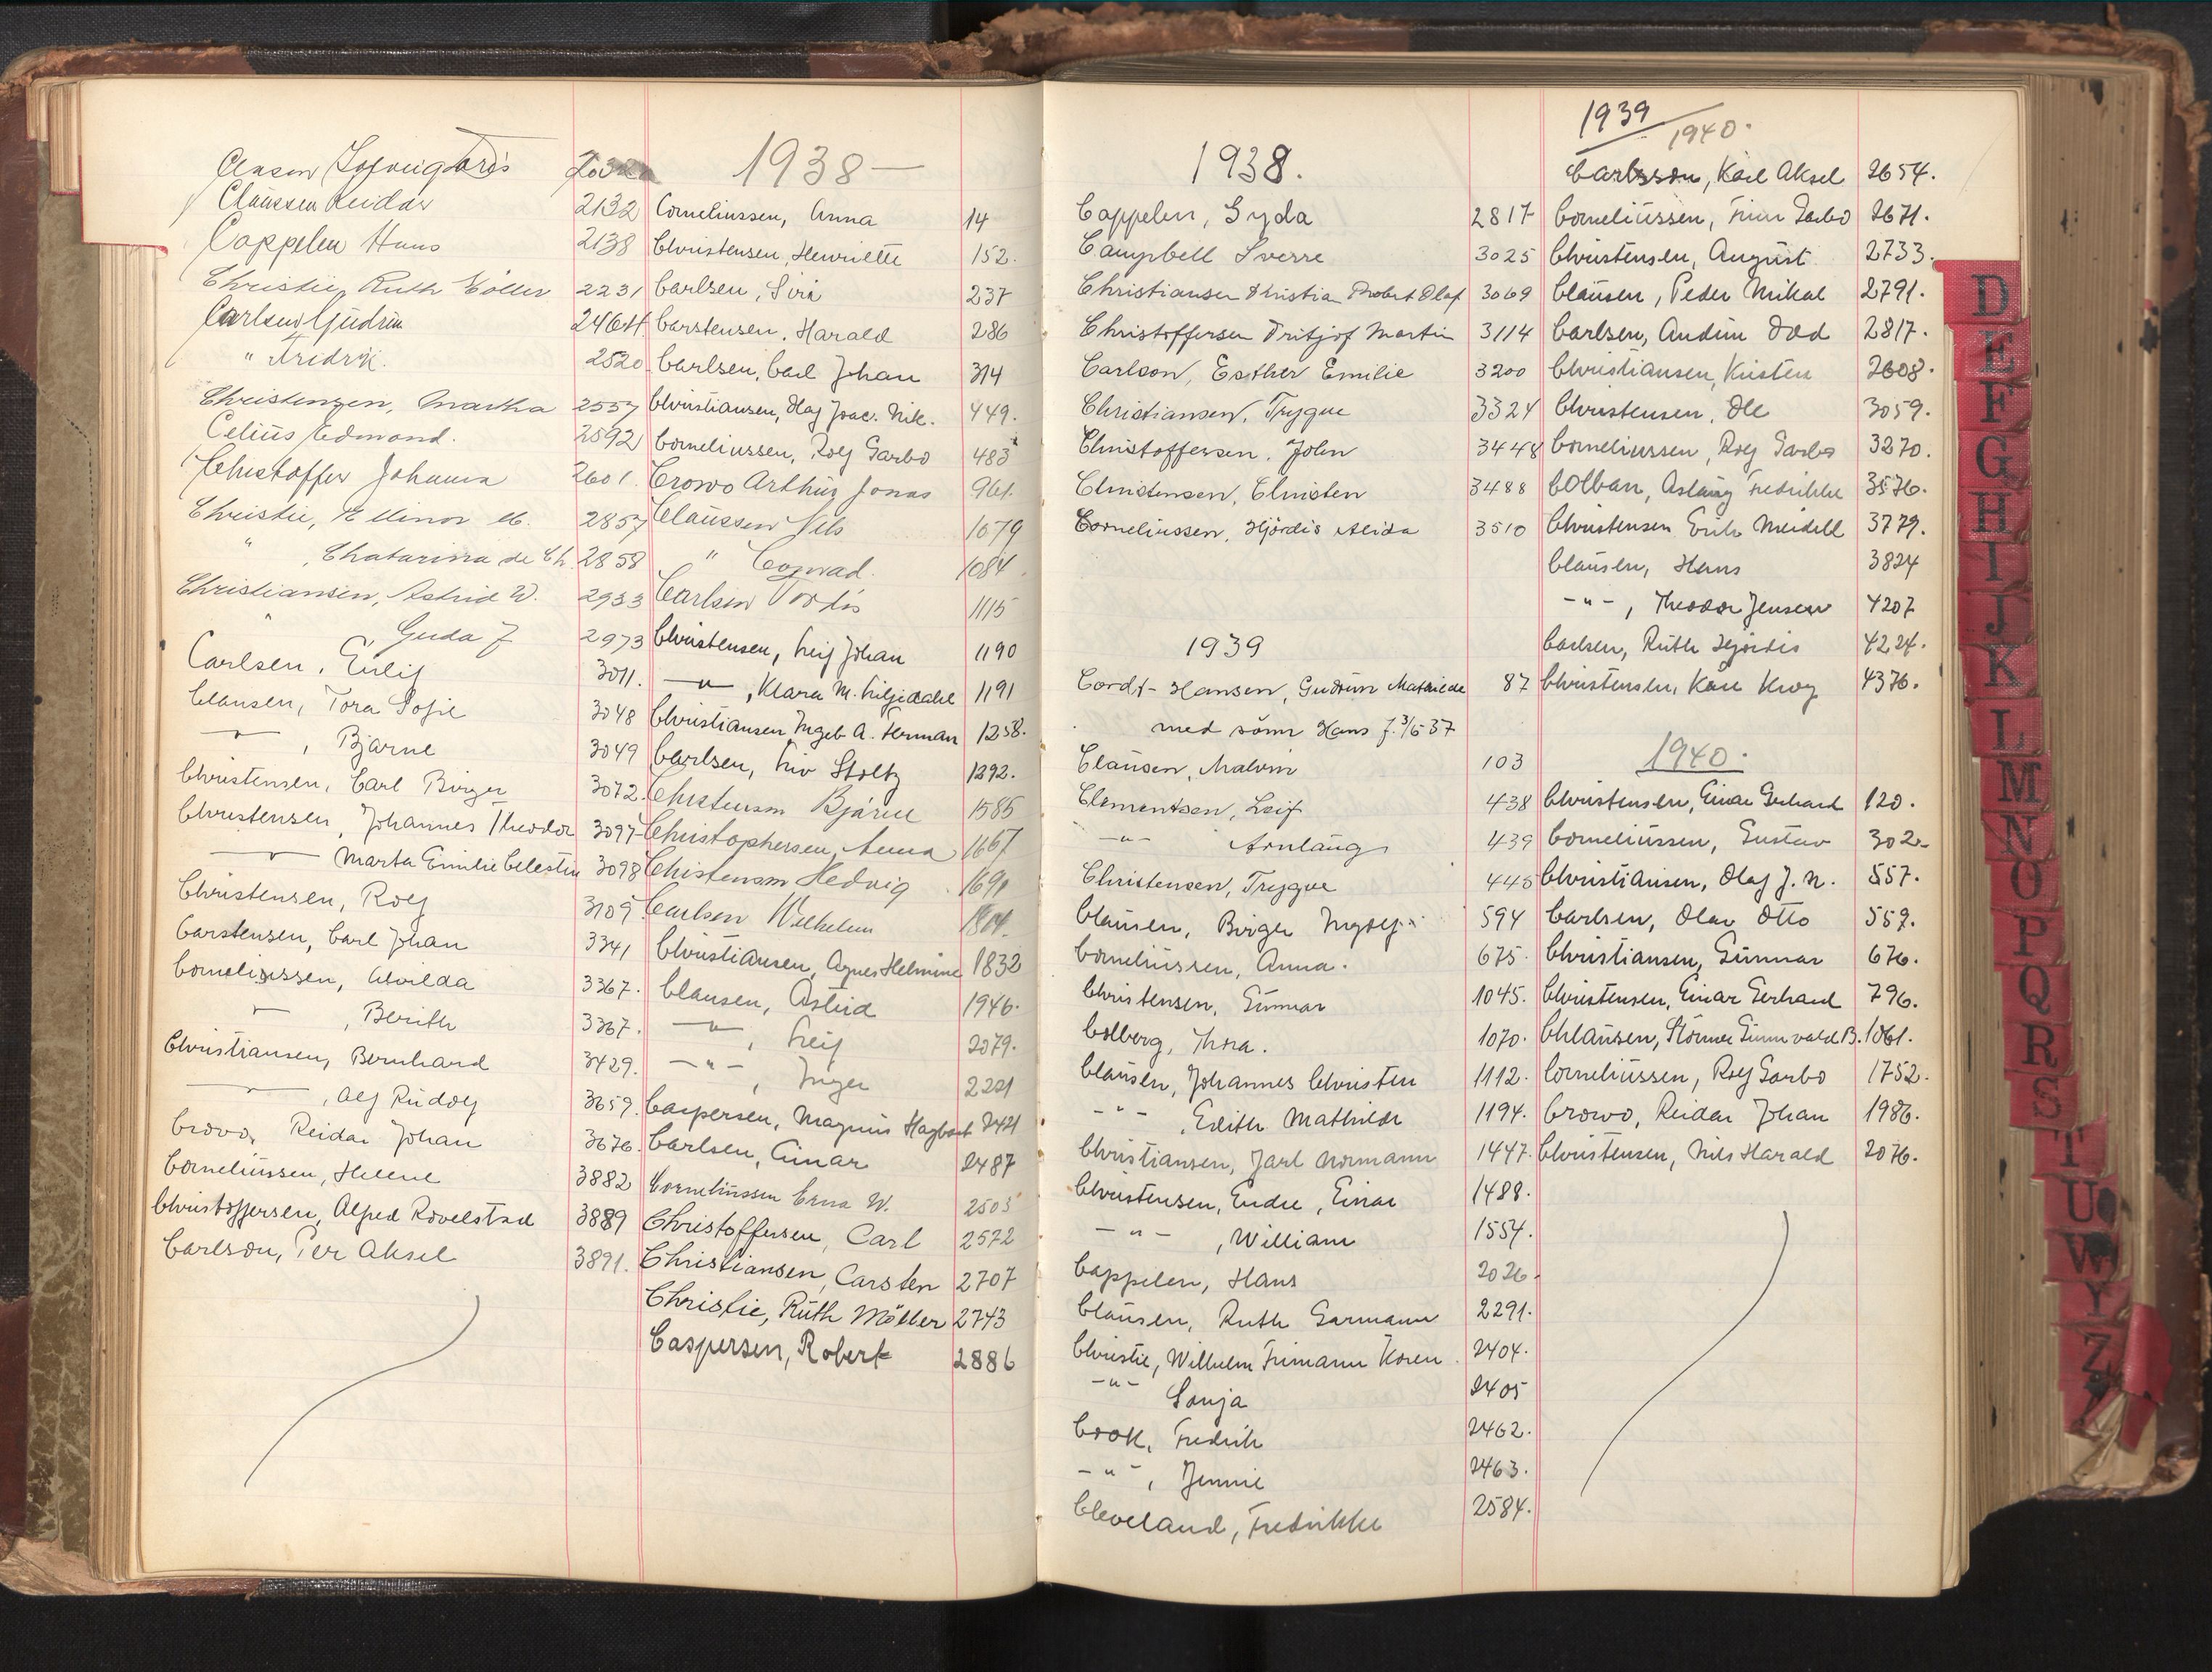 Clausen Reidar 2132
Cappelen Hans 2138
Christie, Ruth Möller 2231
Carlsen Gudrun 2464
" Fredrik. 2520
Christensen, Martha 2557
Celius Edmond. 2592
Christoffer Johanna 2601.
Christie, Ellinor M. 2857
" , Chatarina de Ch. 2858
Christiansen, Astrid W. 2933
" Gerda J 2973
Carlsen, Eilif 3011.
Clausen, Tora Sofie 3048
—"— , Bjarne 3049
Christensen, Carl Birger 3072.
Christensen, Johannes Theodor 3097
—"— Marta Emilie Celestin 3098
Christensen, Rolf 3109
Carstensen, Carl Johan 3341
Corneliussen, Alvilda 3367.
—"— , Berith 3367.
Christiansen, Bernhard 3429.
—"— , Alf Rudolf 3659.
Crowo, Reidar Johan 3676.
Corneliussen, Helene 3882
Christoffersen, Alfred Rovelstad 3889
Carlson, Per Aksel 3891.
1938 —
Corneliussen, Anna 14
Christensen, Henriette 152.
Carlsen, Siri 237
Carstensen, Harald 286
Carlsen, Carl Johan 314
Christiansen, Olaf Isac. Nik. 449.
Corneliussen, Rolf Garbo 483
Crowo Arthur Jonas 961.
Claussen Nils 1079
" Conrad. 1084.
Carlsen Tordis 1115
Christensen, Leif Johan 1190
—"— , Klara M. Liljedahl 1191
Christiansen Ingeb A. Herman 1258.
Carlsen, Liv Stoltz 1292.
Christensen Bjarne 1585
Christophersen, Anna 1667
Christensen Hedvig 1691
Carlsen Wilhelm 1804.
Christiansen, Agnes Helmine 1832
Clausen, Astrid 1946.
—"— , Leif 2079.
—"— , Inger 2221
Caspersen, Magnus Hagbart 2421
Carlsen, Einar 2487
Corneliussen Erna W. 2505
Christoffersen, Carl 2572
Christiansen, Carsten 2707
Christie, Ruth Möller 2743
Caspersen, Robert 2886
1938.
Cappelen, Gyda 2817
Campbell Sverre 3025
Christiansen Kristian Robert Olaf 3069
Christoffersen Fritjof Martin 3114
Carlson, Esther Emilie 3200
Christiansen, Trygve 3324
Christoffersen, John 3448
Christensen, Christen 3488
Corneliussen, Hjördis Alida 3510
1939
Cordt-Hansen, Gudrun Mathilde 87
med sönn Hans f. 3/5 37
Clausen, Malvin 103
Clementsen, Leif 438
—"— Arnlaug 439
Christensen, Trygve 445
Clausen, Birger Ingolf 594
Corneliussen, Anna. 675.
Christensen, Gunnar 1045.
Colberg, Thora. 1070.
Clausen, Johannes Christen 1112.
—"— , Edith Mathilde 1194.
Christiansen, Jarl Normann 1447.
Christensen, Endre, Einar 1488.
—"— , William 1554.
Cappelen, Hans 2026.
Clausen, Ruth Garmann 2291.
Christie, Wilhelm Frimann Koren 2404.
—"— Sonja 2405
Cook, Fredrik 2462.
—"— , Jennie 2463.
Cleveland, Fredrikke 2584.
1939
1940.
Carlsson, Karl Aksel 2654.
Corneliussen, Finn Garbo 2671.
Christensen, August 2733.
Clausen, Peder Mikal 2791.
Carlsen, Audun Odd 2817.
Christiansen, Kristen 2608.
Christensen, Ole 3059.
Corneliussen, Rolf Garbo 3270.
Colban, Aslaug Fredrikke 3576.
Christensen Erik Meidell 3779.
Clausen, Hans 3824
—"— , Theodor Jensen 4207
Carlsen, Ruth Hjördis 4224.
Christensen, Kåre Krog 4376.
1940.
Christensen, Einar Gerhard 120.
Corneliussen, Gustav 302.
Christiansen, Olaf J. N. 557.
Carlsen, Olav Otto 559.
Christiansen, Gunnar 676.
Christensen, Einar Gerhard 796.
Chlausen, Störmer Gunvald B. 1061.
Corneliussen, Rolf Garbo 1752.
Crowo, Reidar Johan 1986.
Christensen, Nils Harald 2076.
D
E
F
G
H
I
J
K
L
M
N
O
P
Q
R
S
T
U
W
Y
Z